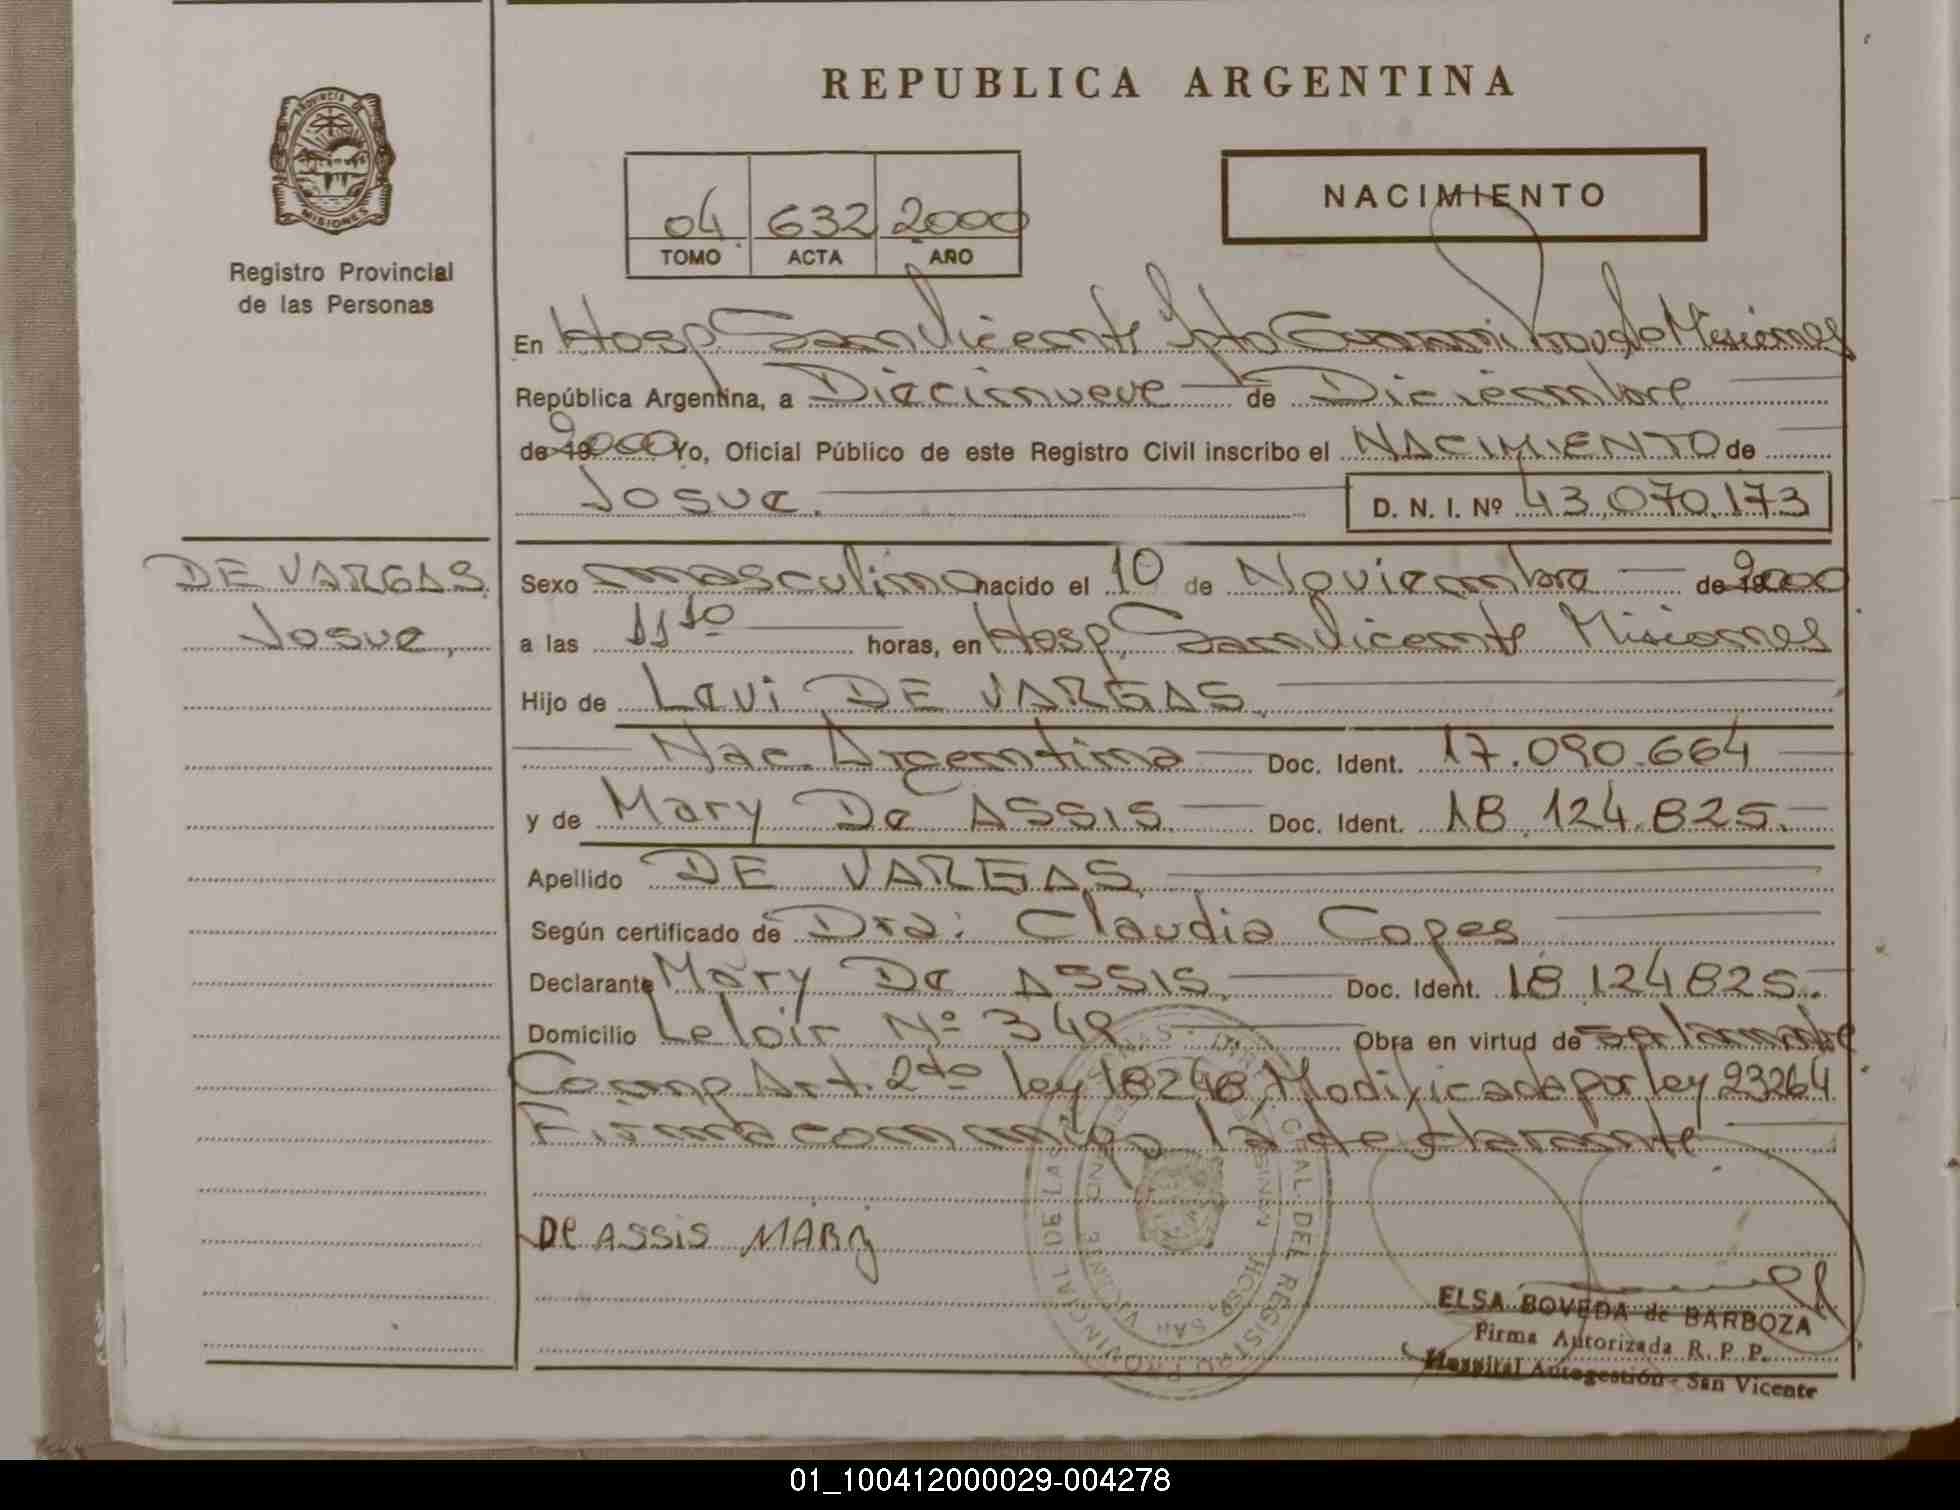 REPUBLICA ARGENTINA
PROVINCIA DE
MISIONES
Registro Provincial
de las Personas
04 632 2000
TOMO ACTA AÑO
NACIMIENTO
En Hosp. San Vicente Dpto Guarani Prov de Misiones
República Argentina, a Diecinueve de Diciembre
de 19 2000 Yo, Oficial Público de este Registro Civil inscribo el NACIMIENTO de
Josue. D. N. I. Nº 43.070.173
DE VARGAS
Josue,
Sexo masculino nacido el 10 de Noviembre de 19 2000
a las 11 10 horas, en Hosp. San Vicente Misiones
Hijo de Levi DE VARGAS.
Nac. Argentina Doc. Ident. 17.090.664
y de Mary De ASSIS. Doc. Ident. 18.124.825.
Apellido DE VARGAS.
Según certificado de Dra: Claudia Copes
Declarante Mary De ASSIS. Doc. Ident. 18 124 825.
Domicilio Leloir Nº 349 Obra en virtud de ser la madre
Comp. Art. 2do ley 18248, Modificade por ley 23264
Firma conmigo la declarante
De ASSIS MARY
ELSA BOVEDA de BARBOZA
Firma Autorizada R. P. P.
Hospital Autogestión - San Vicente
GRAL. DEL REGISTRO PROVINCIAL DE LAS
HOSP. SAN VICENTE
01_100412000029-004278